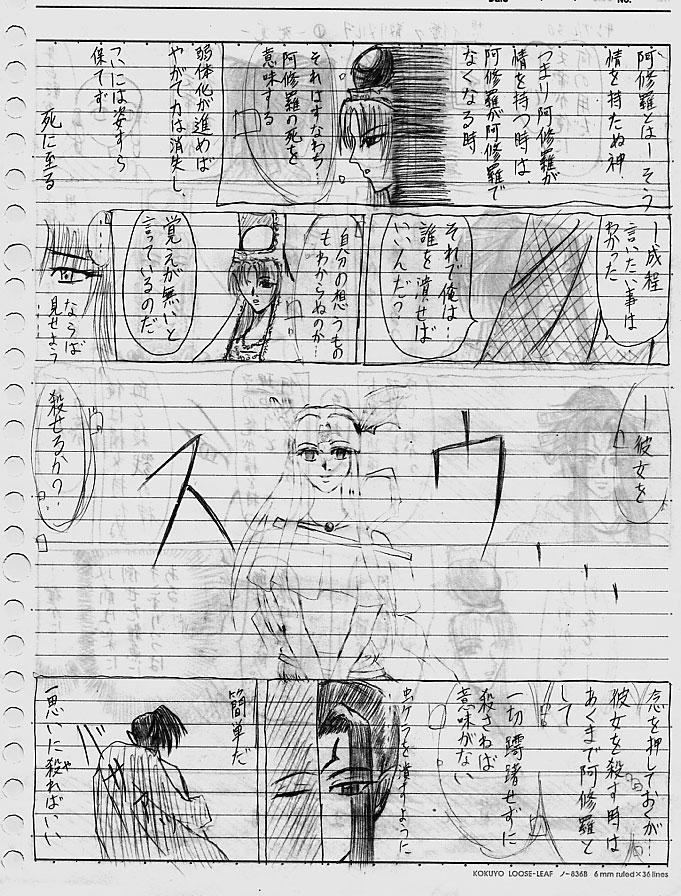 阿修羅とは―そう
情を持たぬ神
つまり阿修羅が
情を持つ時は、
阿修羅が阿修羅で
なくなる時
それはすなわち…
阿修羅の死を
意味する
弱体化が進めば
やがて力は消失し、
ついには姿すら
保てず
死に至る
―成程
言いたい事は
わかった
それで俺は…
誰を潰せば
いいんだ?
自分の想うもの
もわからぬのか…
覚えが無いと
言っているのだ
―…
ならば
見せよう
―彼女を
ウ
ス
殺せるか?
念を押しておくが…
彼女を殺す時は
あくまで阿修羅と
して
一切躊躇せずに
殺さねば
意味がない
虫ケラを潰すように
簡単だ
一思いに殺ればいい
や
KOKUYO LOOSE-LEAF ノ-836B 6mm ruled×36 lines